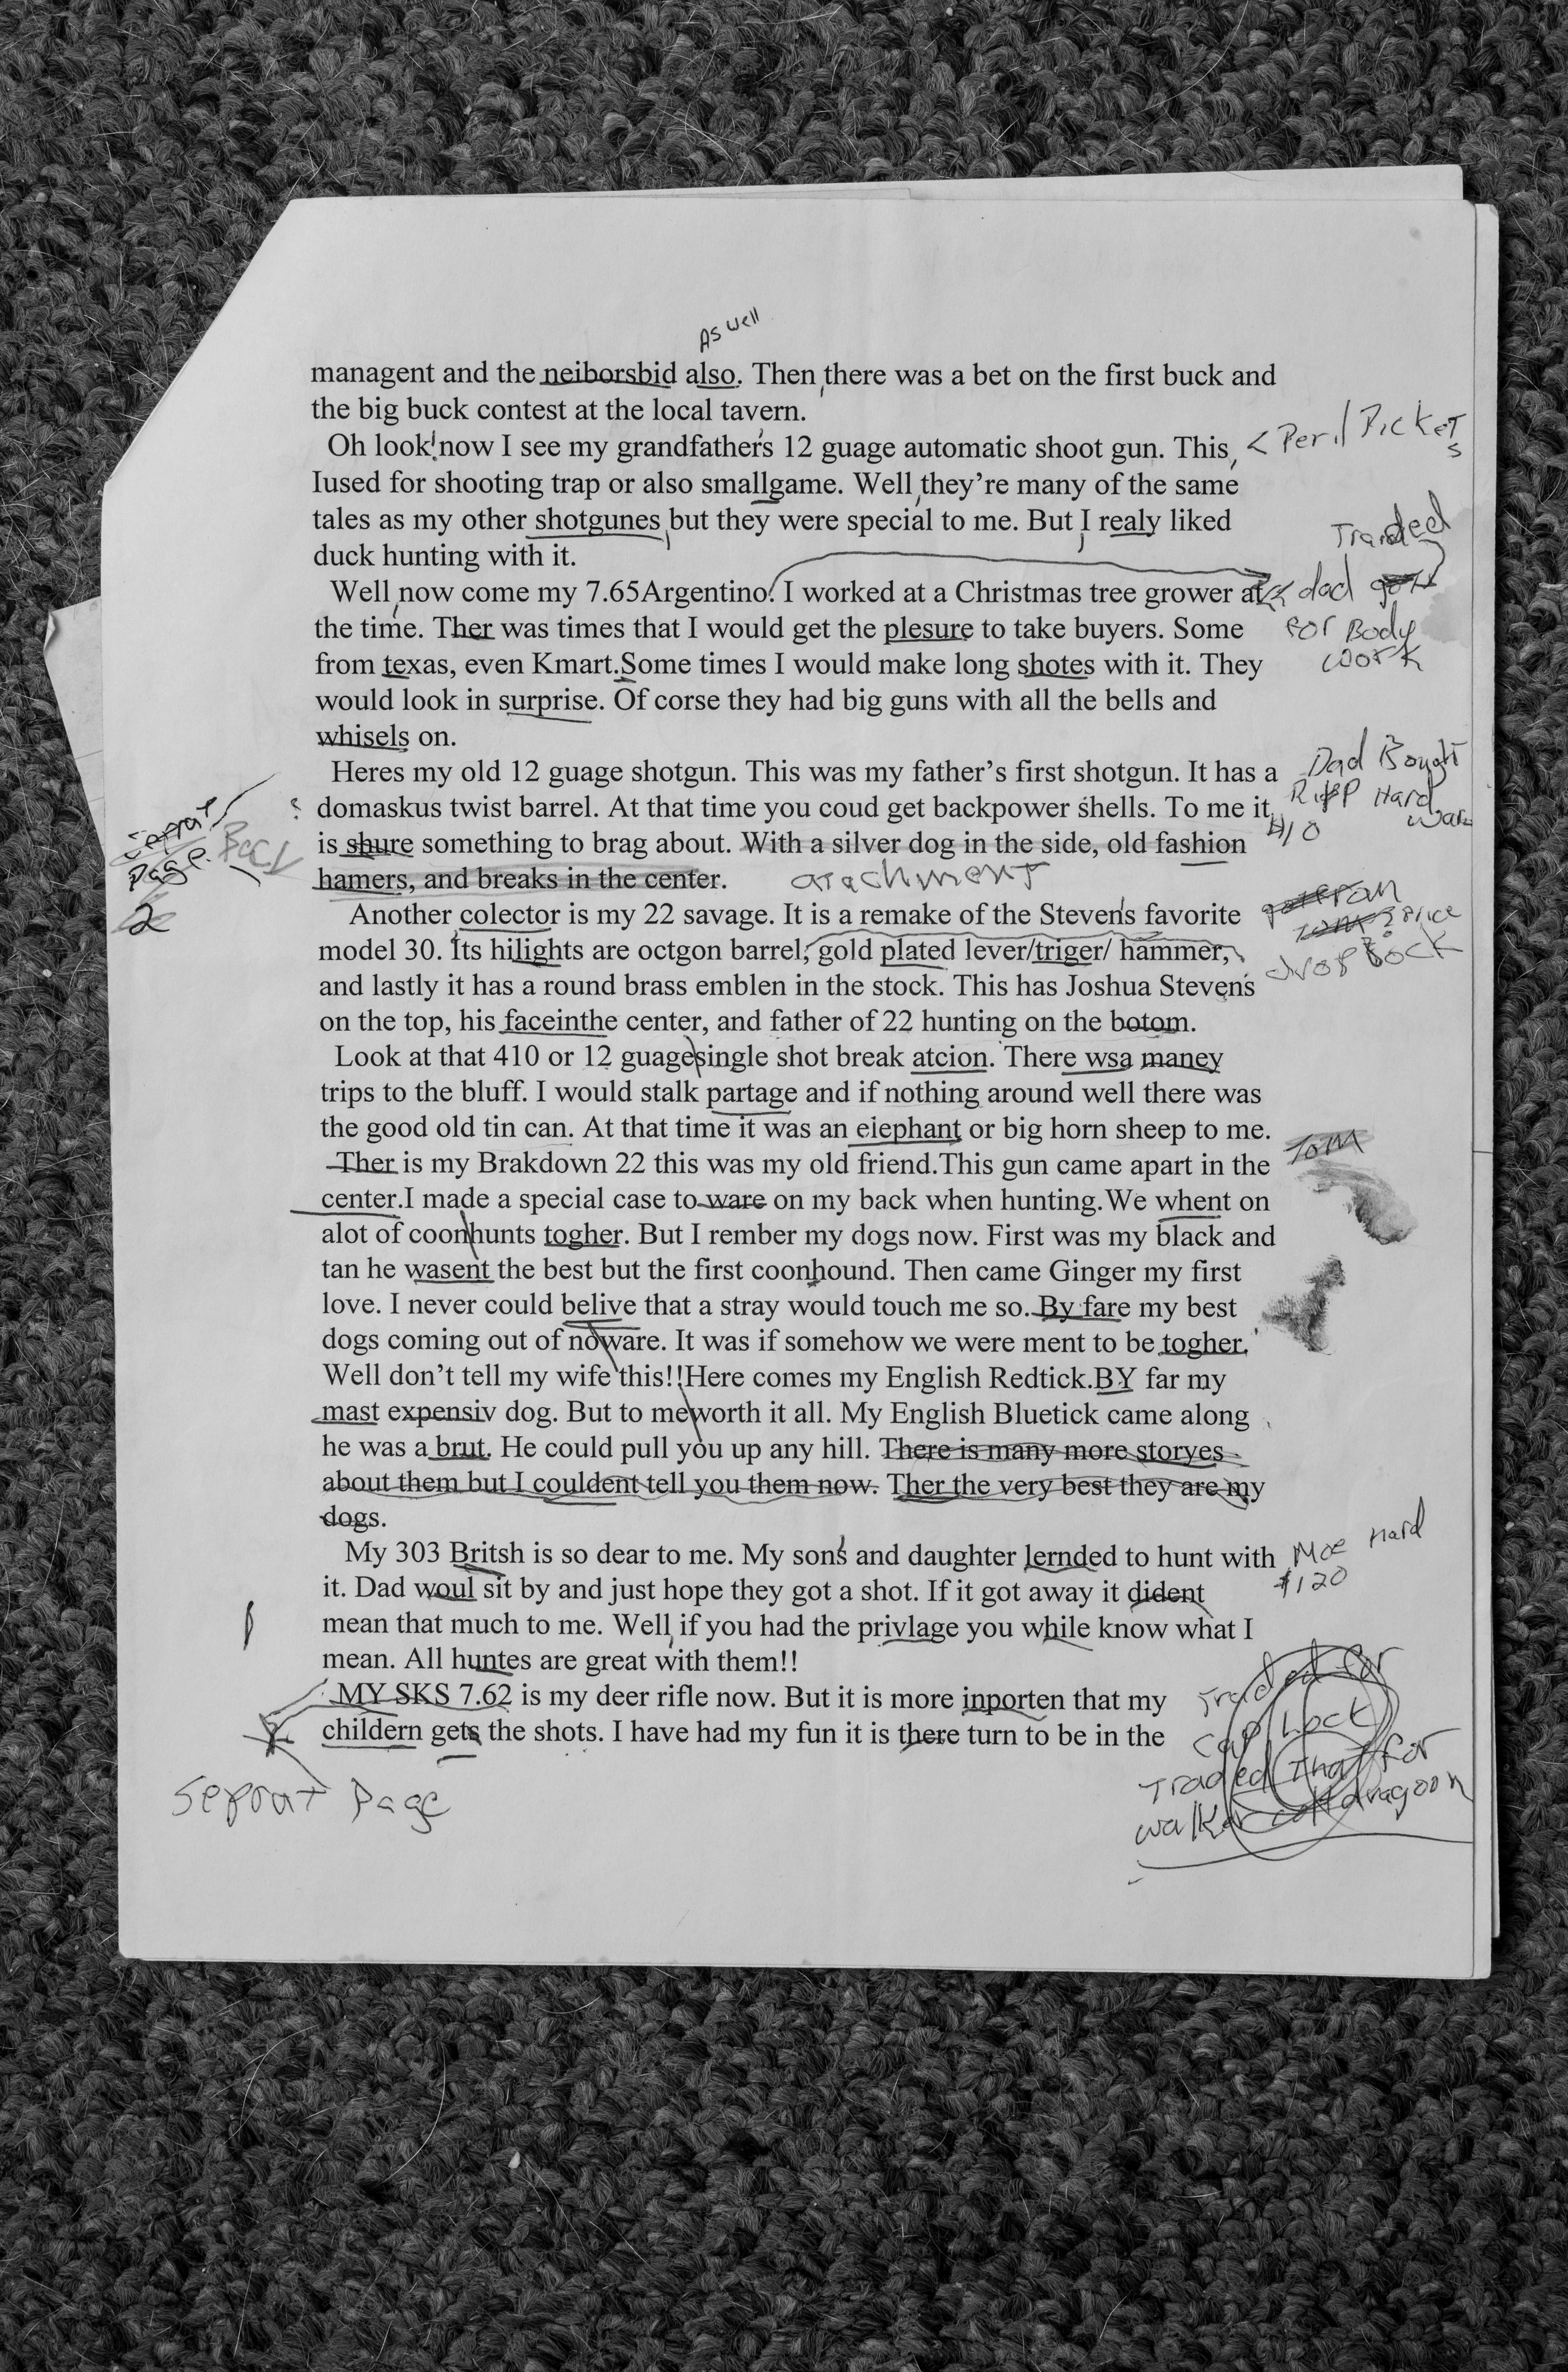 As well
managent and the neiborsbid also. Then, there was a bet on the first buck and
the big buck contest at the local tavern.
Oh look! now I see my grandfather's 12 guage automatic shoot gun. This,
< Peril Picket
s
Iused for shooting trap or also smallgame. Well, they're many of the same
tales as my other shotgunes, but they were special to me. But, I realy liked
Traded
duck hunting with it.
Well, now come my 7.65Argentino. I worked at a Christmas tree grower at
dad
the time. Ther was times that I would get the plesure to take buyers. Some
For Body
from texas, even Kmart.Some times I would make long shotes with it. They
work
would look in surprise. Of corse they had big guns with all the bells and
whisels on.
Heres my old 12 guage shotgun. This was my father's first shotgun. It has a
Dad Bought
? domaskus twist barrel. At that time you coud get backpower shells. To me it,
Hard
ware
$10
Seprat
Page. Back
2
is shure something to brag about. With a silver dog in the side, old fashion
hamers, and breaks in the center.
atachment
Another colector is my 22 savage. It is a remake of the Steven's favorite
Price
model 30. Its hilights are octgon barrel, gold plated lever/triger/ hammer,
drop Bock
and lastly it has a round brass emblen in the stock. This has Joshua Stevens
on the top, his faceinthe center, and father of 22 hunting on the botom.
Look at that 410 or 12 guagesingle shot break atcion. There wsa maney
trips to the bluff. I would stalk partage and if nothing around well there was
the good old tin can. At that time it was an eiephant or big horn sheep to me.
Tom
Ther is my Brakdown 22 this was my old friend.This gun came apart in the
center.I made a special case to ware on my back when hunting.We whent on
alot of coonhunts togher. But I rember my dogs now. First was my black and
tan he wasent the best but the first coonhound. Then came Ginger my first
love. I never could belive that a stray would touch me so. By fare my best
dogs coming out of noware. It was if somehow we were ment to be togher.
Well don't tell my wife this!!Here comes my English Redtick.BY far my
mast expensiv dog. But to meworth it all. My English Bluetick came along
he was a brut. He could pull you up any hill. There is many more storyes
about them but I couldent tell you them now. Ther the very best they are my
dogs.
My 303 Britsh is so dear to me. My son's and daughter lernded to hunt with
Moe Hard
$120
it. Dad woul sit by and just hope they got a shot. If it got away it dident
mean that much to me. Well, if you had the privlage you while know what I
mean. All huntes are great with them!!
MY SKS 7.62 is my deer rifle now. But it is more inporten that my
childern gets the shots. I have had my fun it is there turn to be in the
Traded for
Cap Lock
Traded That for
Walker colt dragoon
Seprat Page